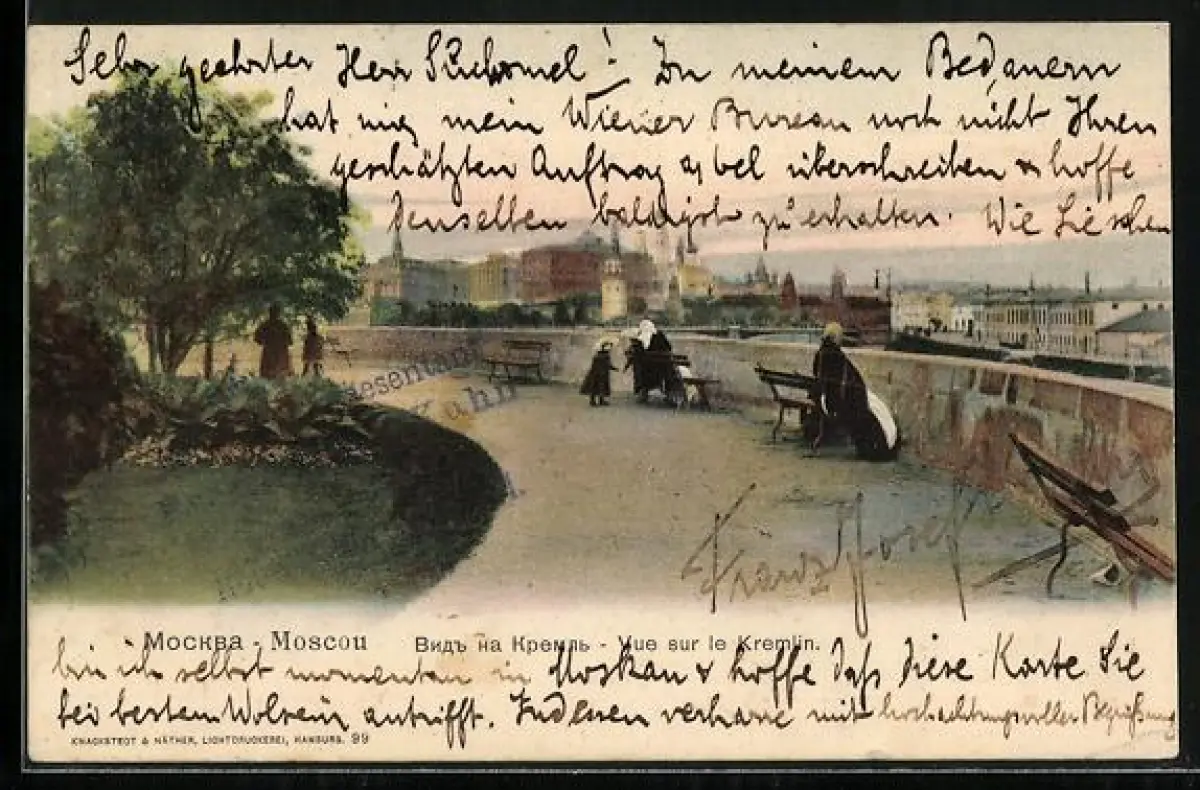 Sehr geehrter Herr Suchomel! Zu meinem Bedauern
hat mir mein Wiener Bureau noch nicht Ihren
geschätzten Auftrag überschreiben & hoffe
denselben baldigst zu erhalten. Wie Sie sehen
Franz Josef
Москва - Moscou Видъ на Кремль - Vue sur le Kremlin.
bin ich selbst momentan in Moskau & hoffe daß diese Karte Sie
bei bestem Wolsein antrifft. Indessen verharre mit hochachtungsvoller Begrüßung
KNACKSTEDT & NÄTHER, LICHTDRUCKEREI, HAMBURG. 99